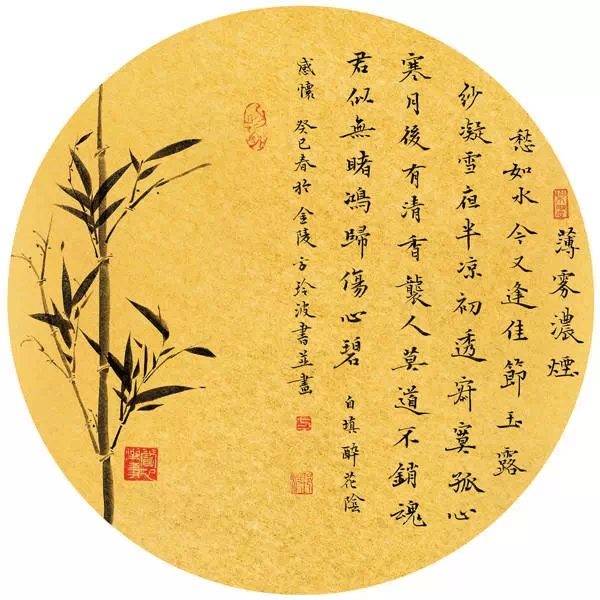 薄雾濃煙
愁如水今又逢佳節玉露
紗凝雪夜半凉初透寂寞孤心
寒月後有清香襲人莫道不銷魂
君似無睹鴻歸傷心碧 自填醉花陰
感懷 癸巳春於金陵方玲波書並畫